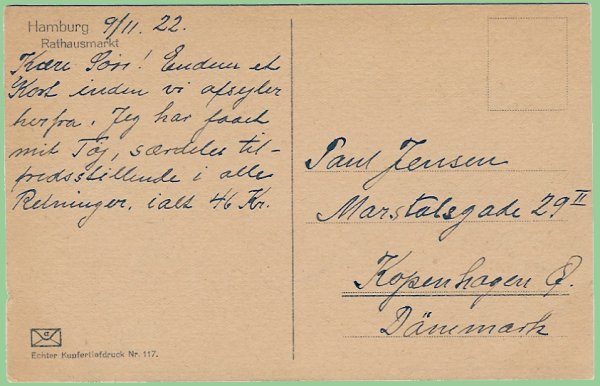 Hamburg 9/11. 22.
Rathausmarkt
Kære Søs! Endnu et
Kort inden vi afsejler
herfra. Jeg har faaet
mit Tøj, særdeles til-
fredsstillende i alle
Retninger, ialt 46 Kr.
Echter Kupfertiefdruck Nr. 117.
Paul Jensen
Marstalsgade 29 II
Kopenhagen Ø.
Dänmark